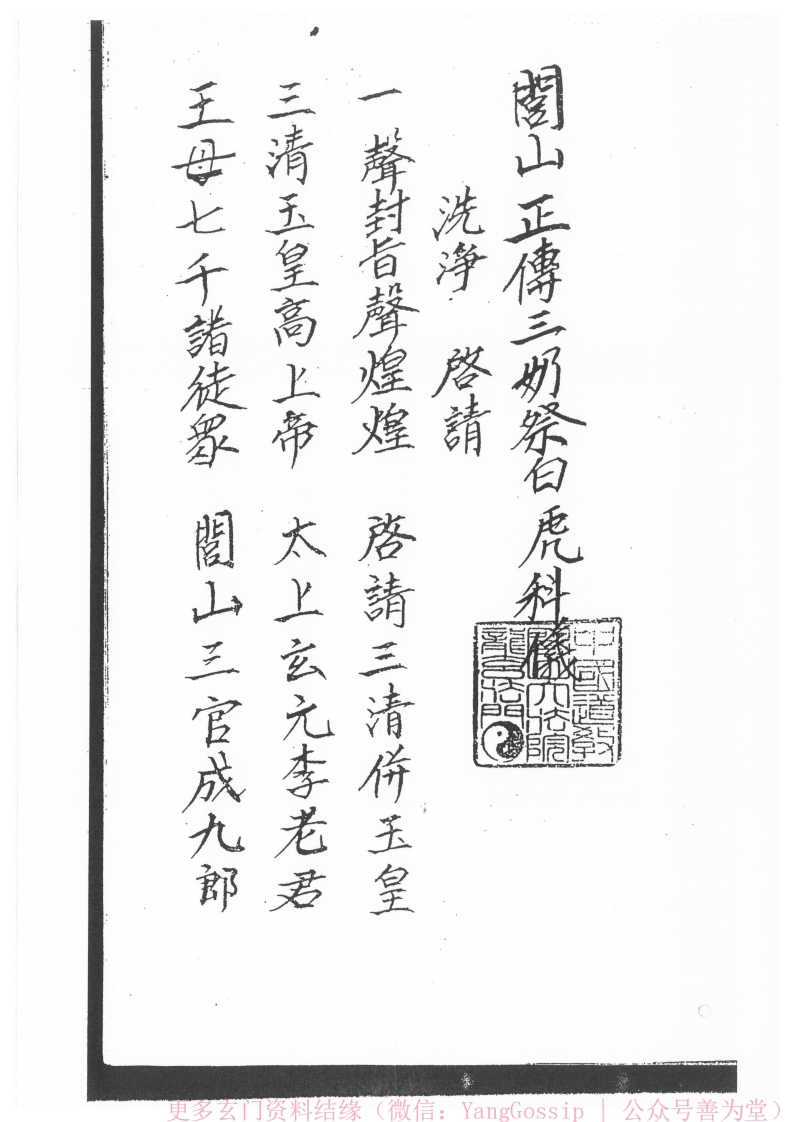 閭山正傳三奶祭白虎科儀
洗淨 啓請
一聲封旨聲煌煌 啓請三清併玉皇
三清玉皇高上帝 太上玄元李老君
王母七千諸徒眾 閭山三官成九郎
中國道教
大法院
龍 法門
更多玄门资料结缘（微信：YangGossip | 公众号善为堂）